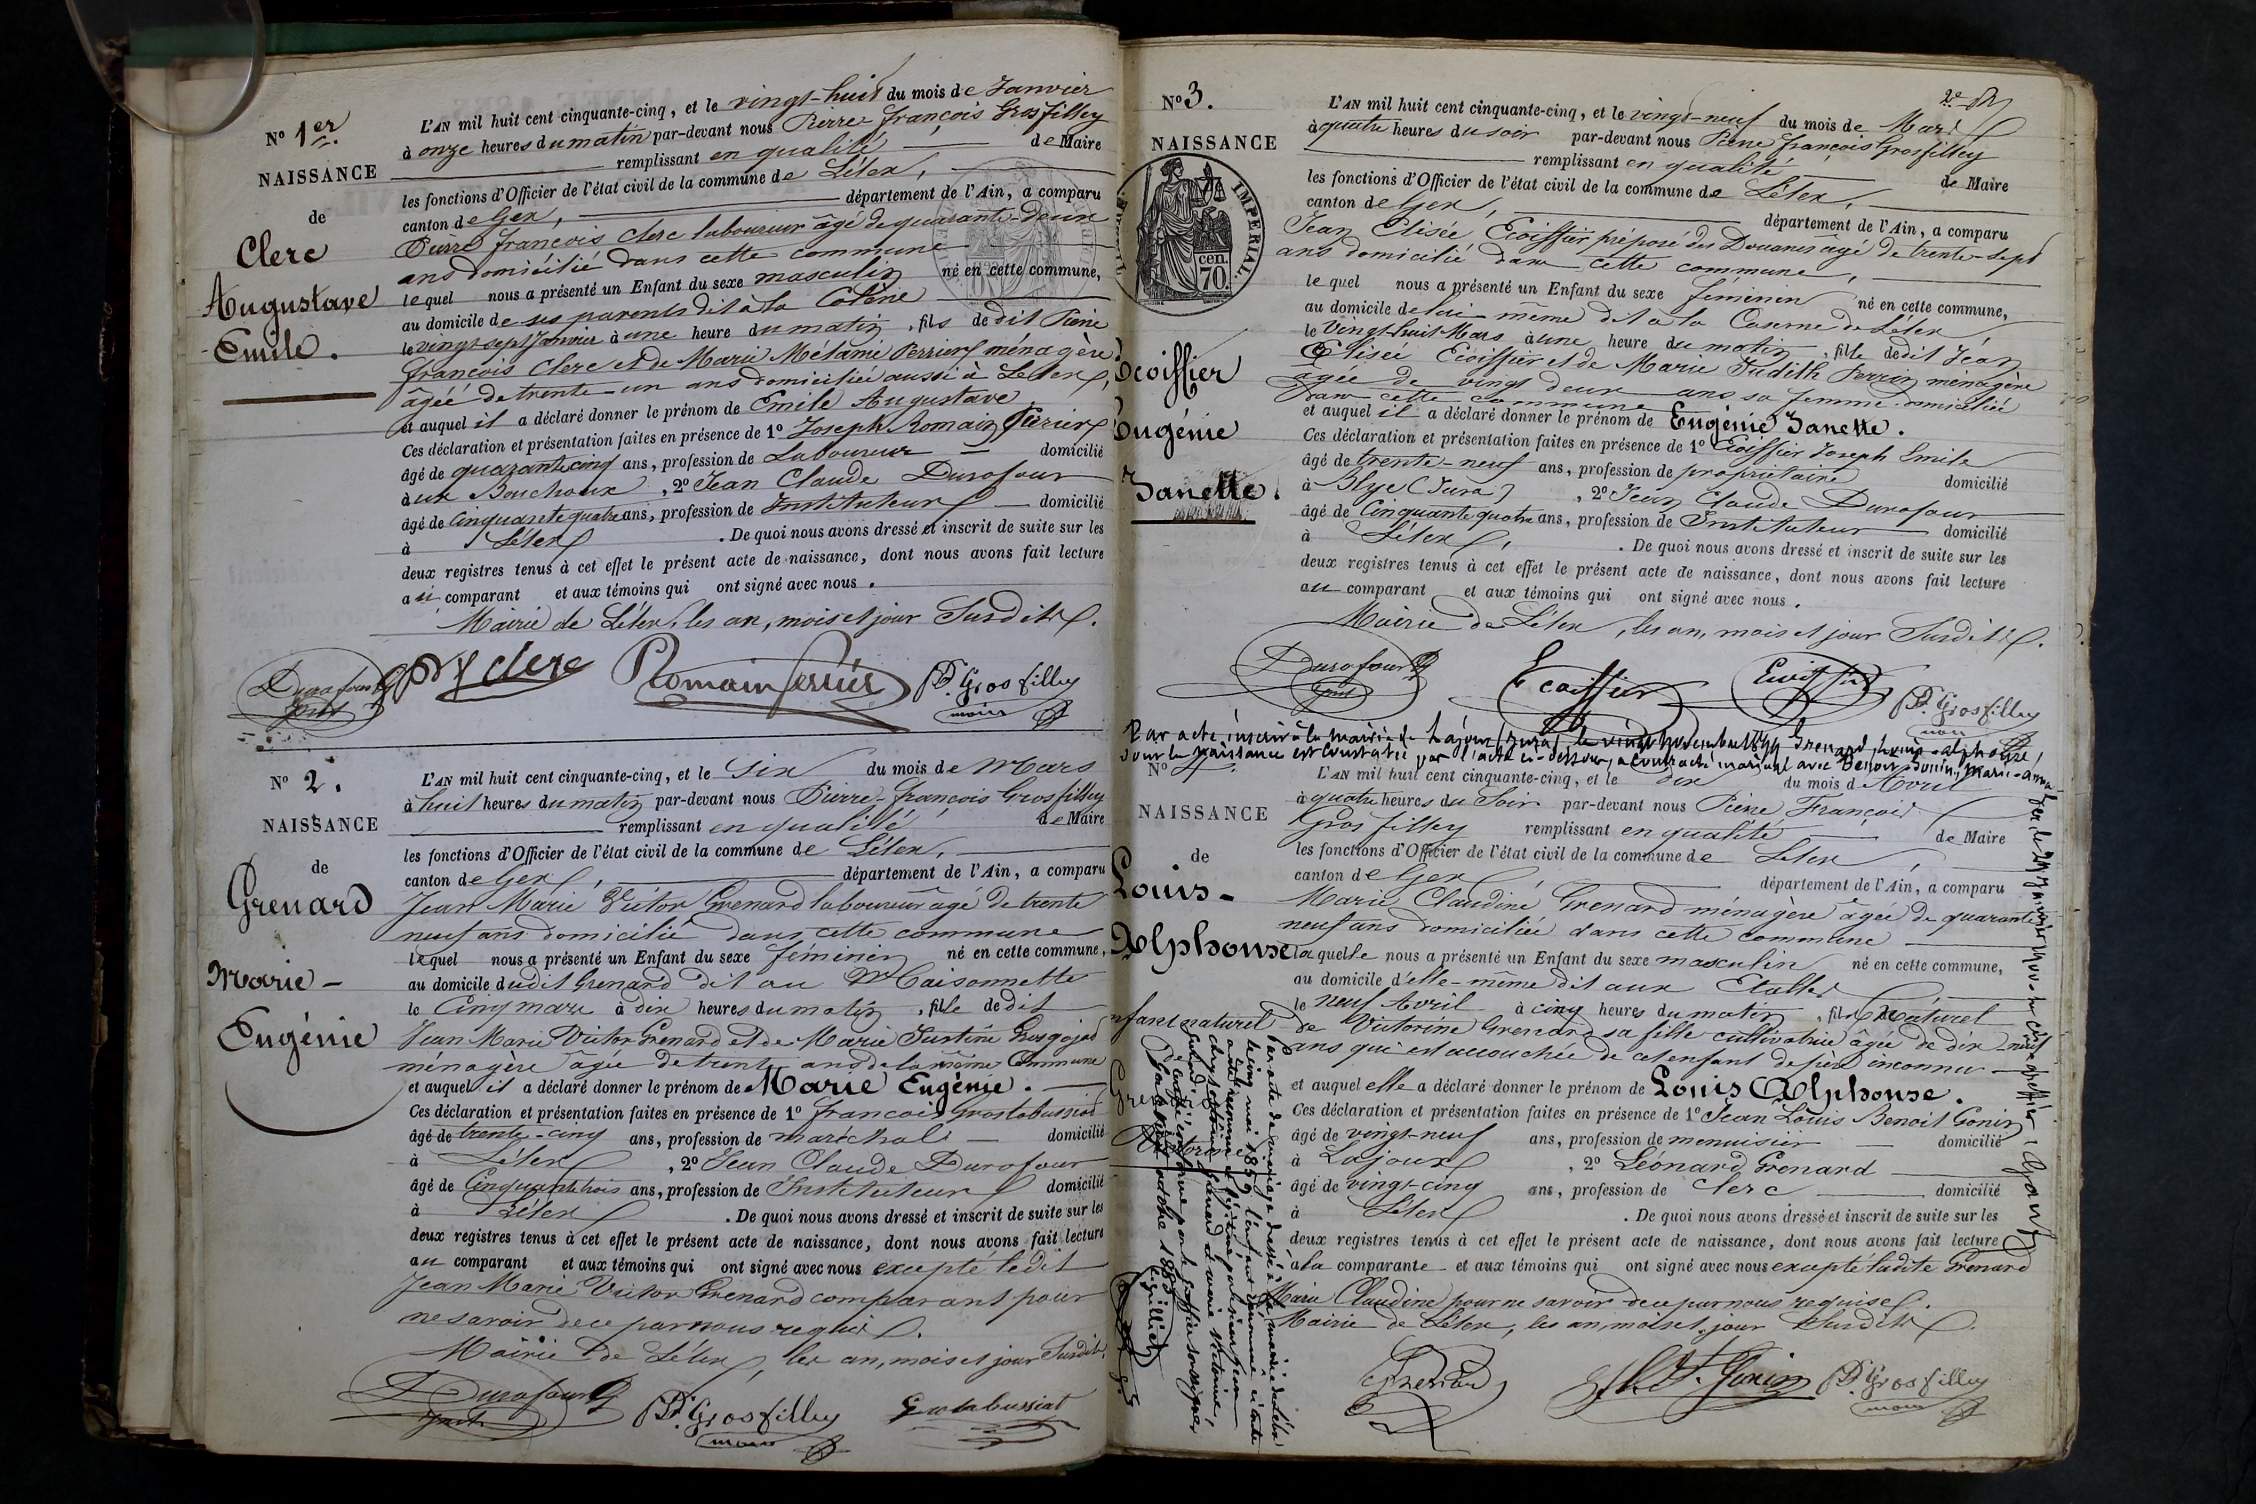 N° 1er.
NAISSANCE
de
Clerc
Augustave
Emile.
L'AN mil huit cent cinquante-cinq, et le vingt-huit du mois de Janvier
à onze heures du matin par-devant nous Pierre François Grosfilley
remplissant en qualité de Maire
les fonctions d'Officier de l'état civil de la commune de Lélex,
canton de Gex, département de l'Ain, a comparu
Pierre François Clerc laboureur âgé de quarante-deux
ans domicilié dans cette commune
lequel nous a présenté un Enfant du sexe masculin né en cette commune,
au domicile de ses parents dit à la
le vingt sept Janvier à une heure du matin, fils de dit Pierre
François Clerc et de Marie Mélanie Perrier ménagère
âgée de trente-un ans domiciliée aussi à Lelex,
et auquel il a déclaré donner le prénom de Emile Augustave
Ces déclaration et présentation faites en présence de 1° Joseph Romain Perrier
âgé de quarante cinq ans, profession de Laboureur domicilié
aux Bouchoux, 2° Jean Claude Durafour
âgé de Cinquante quatre ans, profession de Instituteur domicilié
à Lélex. De quoi nous avons dressé et inscrit de suite sur les
deux registres tenus à cet effet le présent acte de naissance, dont nous avons fait lecture
au comparant et aux témoins qui ont signé avec nous.
Mairie de Lélex, les an, mois et jour Susdits.
Durafour
Inst
Clerc
Romain Perrier
P.F. Grosfilley
maire
N° 2.
NAISSANCE
de
Grenard
Marie-
Eugénie
L'AN mil huit cent cinquante-cinq, et le Six du mois de Mars
à huit heures du matin par-devant nous Pierre-François Grosfilley
remplissant en qualité de Maire
les fonctions d'Officier de l'état civil de la commune de Lélex,
canton de Gex, département de l'Ain, a comparu
Jean Marie Victor Grenard laboureur âgé de trente
neuf ans domicilié dans cette commune
lequel nous a présenté un Enfant du sexe féminin né en cette commune,
au domicile dudit Grenard dit au Maisonnette
le Cinq mars à dix heures du matin, fille de dit
Jean Marie Victor Grenard et de Marie Justine Grosgojat
ménagère âgée de trente ans de la même Commune
et auquel il a déclaré donner le prénom de Marie Eugénie.
Ces déclaration et présentation faites en présence de 1° François Groslabussiat
âgé de trente-cinq ans, profession de maréchal domicilié
à Lélex, 2° Jean Claude Durafour
âgé de Cinquante trois ans, profession de Instituteur domicilié
à Lélex. De quoi nous avons dressé et inscrit de suite sur les
deux registres tenus à cet effet le présent acte de naissance, dont nous avons fait lecture
au comparant et aux témoins qui ont signé avec nous excepté ledit
Jean Marie Victor Grenard comparant pour
ne savoir de ce par nous requis.
Mairie de Lélex, les an, mois et jour Susdits.
Durafour
Inst.
P.F. Grosfilley
maire
Groslabussiat
2e
N° 3.
NAISSANCE
IMPERIAL.
70 cen.
Ecoiffier
Eugénie
Janette.
L'AN mil huit cent cinquante-cinq, et le vingt-neuf du mois de Mars
à quatre heures du soir par-devant nous Pierre François Grosfilley
remplissant en qualité de Maire
les fonctions d'Officier de l'état civil de la commune de Lélex,
canton de Gex, département de l'Ain, a comparu
Jean Elisée Ecoiffier préposé des Douanes âgé de trente-sept
ans domicilié dans cette commune,
lequel nous a présenté un Enfant du sexe féminin né en cette commune,
au domicile de lui-même dit à la Caserne de Lélex
le Vingt-huit Mars à une heure du matin, fille dedit Jean
Elisée Ecoiffier et de Marie Judith Perrin ménagère
âgée de vingt deux ans sa femme domiciliée
dans cette commune
et auquel il a déclaré donner le prénom de Eugénie Janette.
Ces déclaration et présentation faites en présence de 1° Ecoiffier Joseph Emile
âgé de trente-neuf ans, profession de propriétaire domicilié
à Blye (Jura), 2° Jean Claude Durafour
âgé de Cinquante quatre ans, profession de Instituteur domicilié
à Lélex. De quoi nous avons dressé et inscrit de suite sur les
deux registres tenus à cet effet le présent acte de naissance, dont nous avons fait lecture
au comparant et aux témoins qui ont signé avec nous.
Mairie de Lélex, les an, mois et jour Susdits.
Durafour
Inst
Ecoiffier
Ecoiffier
P.F. Grosfilley
maire
Par acte inscrit à la mairie de Lajoux (Jura) le vingt novembre 1899 Grenard Louis-alphonse,
dont la naissance est constatée par l'acte ci-dessous, a contracté mariage avec Benoit-Gonin, Marie-Anna
Gex, le 24 Janvier 1900
N° 4.
NAISSANCE
de
Louis-
Alphonse
enfant naturel
Grenard
Victorine
L'AN mil huit cent cinquante-cinq, et le dix du mois d'Avril
à quatre heures du Soir par-devant nous Pierre François
Grosfilley remplissant en qualité de Maire
les fonctions d'Officier de l'état civil de la commune de Lelex,
canton de Gex, département de l'Ain, a comparu
Marie Claudine Grenard ménagère âgée de quarante
neuf ans domiciliée dans cette commune
laquelle nous a présenté un Enfant du sexe masculin né en cette commune,
au domicile d'elle-même dit aux Etables
le neuf Avril à cinq heures du matin, fils Naturel
de Victorine Grenard sa fille cultivatrice âgée de dix-neuf
ans qui est accouchée de cet enfant de père inconnu
et auquel elle a déclaré donner le prénom de Louis Alphonse.
Ces déclaration et présentation faites en présence de 1° Jean Louis Benoit Gonin
âgé de vingt-neuf ans, profession de menuisier domicilié
à Lajoux, 2° Léonard Grenard
âgé de vingt-cinq ans, profession de clerc domicilié
à Lélex. De quoi nous avons dressé et inscrit de suite sur les
deux registres tenus à cet effet le présent acte de naissance, dont nous avons fait lecture
à la comparante et aux témoins qui ont signé avec nous excepté ladite Grenard
Marie Claudine pour ne savoir de ce par nous requise.
Mairie de Lélex, les an, mois et jour Susdits.
Par acte de mariage dressé à la mairie de Lélex
mai 1859 l'enfant dénommé ci contre
a été reconnu et légitimé par
Grenard et marie Victorine,
Grenard
par le greffier soussigné,
octobre 1883
Grenard
J.L. Bt. Gonin
P.F. Grosfilley
maire